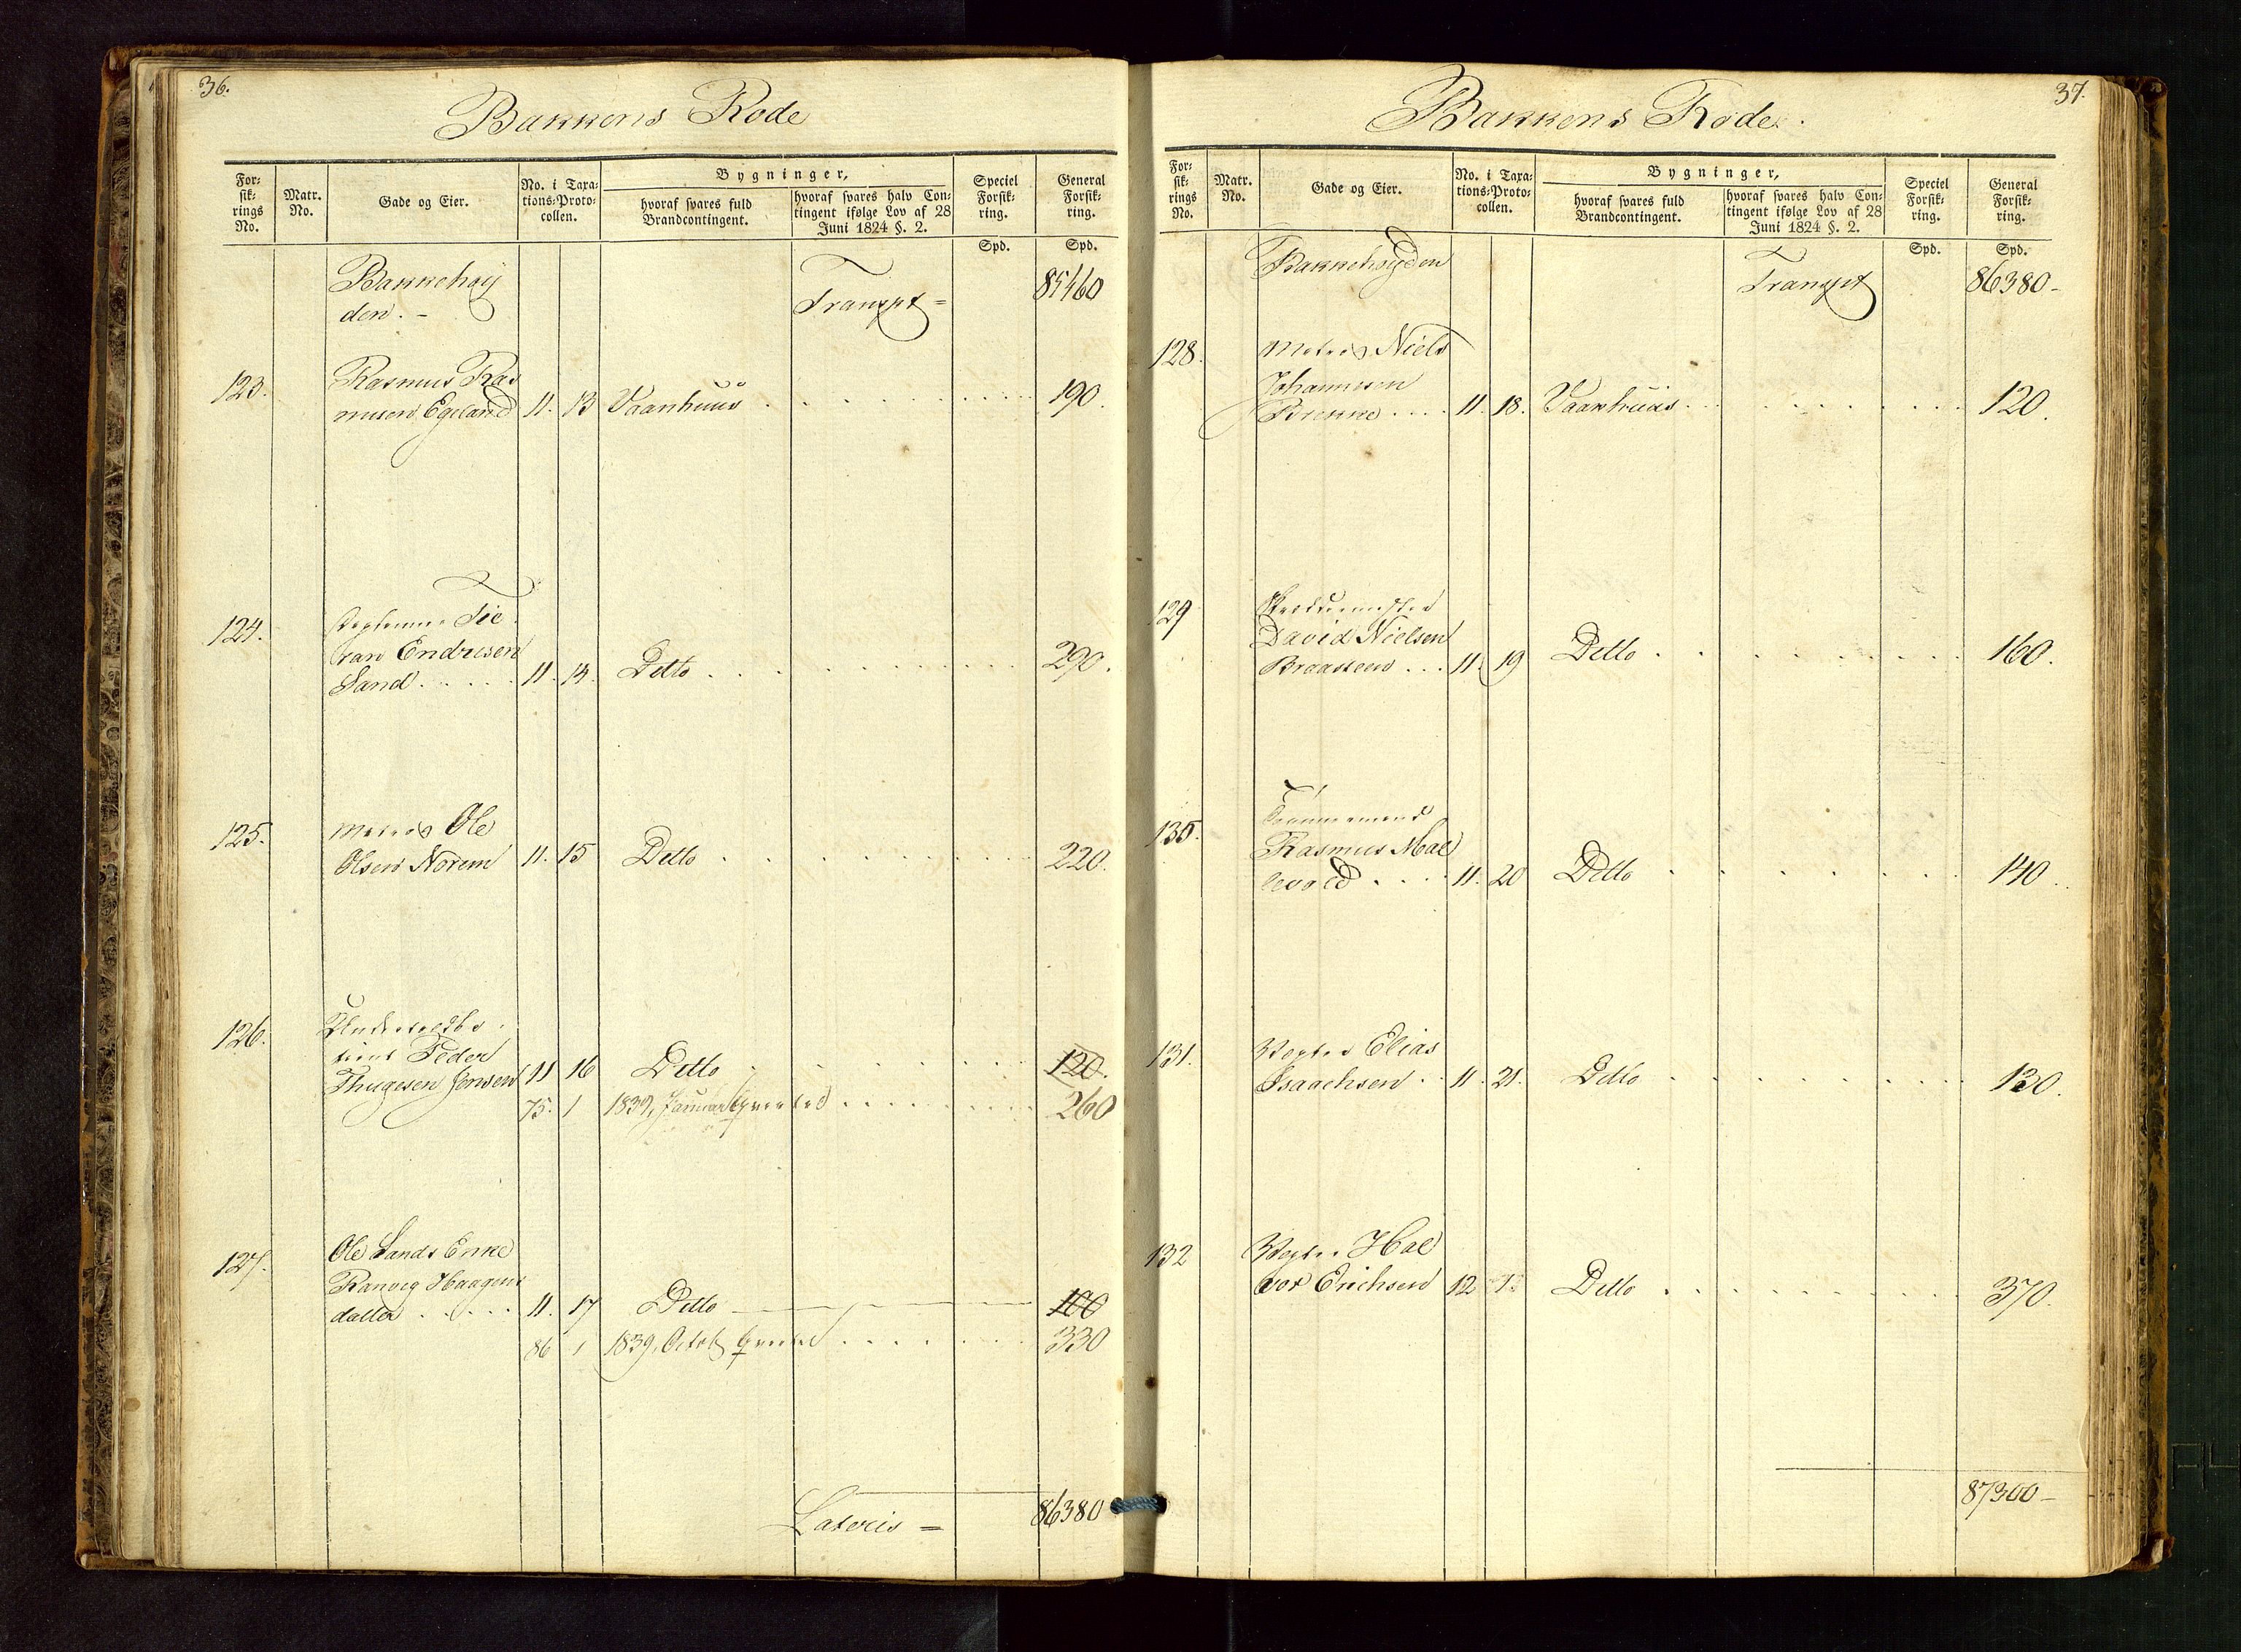 36.
Bakkens Rode
For-
sik-
rings
No.
Matr.
No.
Gade og Eier.
No. i Taxa-
tions-Proto-
collen.
Bygninger,
hvoraf svares fuld
Brandcontingent.
hvoraf svares halv Con-
tingent ifølge Lov af 28
Juni 1824 §. 2.
Speciel
Forsik-
ring.
General
Forsik-
ring.
Spd. Spd.
Bakkehøy
den. - Transpt = 85460
123. Rasmus Ras
musen Egeland 11. 13 Vaanhuus . . . . . 190.
124. Tie
ran Endresen
Sand . . . . 11. 14. Detto . . . . . 290.
125. Matros Ole
Olsen Norem 11. 15 Detto . . . . . 220.
126.
Peder
Thugesen Jensen 11 16 Detto . . . . . 120.
75. 1 1839, Januar Qvartal . . . . . 260
127. Ole Sands Enke
Ranveg Haagens
datter . . . . 11. 17 Detto 100
86 1 1839, Octob Qvartal . . . . . 330
Lateris = 86380
37.
Bakkens Rode.
For-
sik-
rings
No.
Matr.
No.
Gade og Eier.
No. i Taxa-
tions-Proto-
collen.
Bygninger,
hvoraf svares fuld
Brandcontingent.
hvoraf svares halv Con-
tingent ifølge Lov af 28
Juni 1824 §. 2.
Speciel
Forsik-
ring.
General
Forsik-
ring.
Spd. Spd.
Bakkehøyden Transpt 86380-
128. Matros Niels
Johannesen
Brekke . . . . 11. 18. Vaanhuus . . . . . 120.
129
David Nielsen
Braasteen . . . 11. 19 Detto . . . . . 160.
130. Tømmermand
Rasmus Mal
levold . . . . 11. 20 Detto . . . . . 140.
131. Vegter Elias
Isaachsen . . 11. 21. Detto . . . . . 130.
132 Vegter Hal
vor Erichsen 12 1. Detto . . . . . 370.
87300-